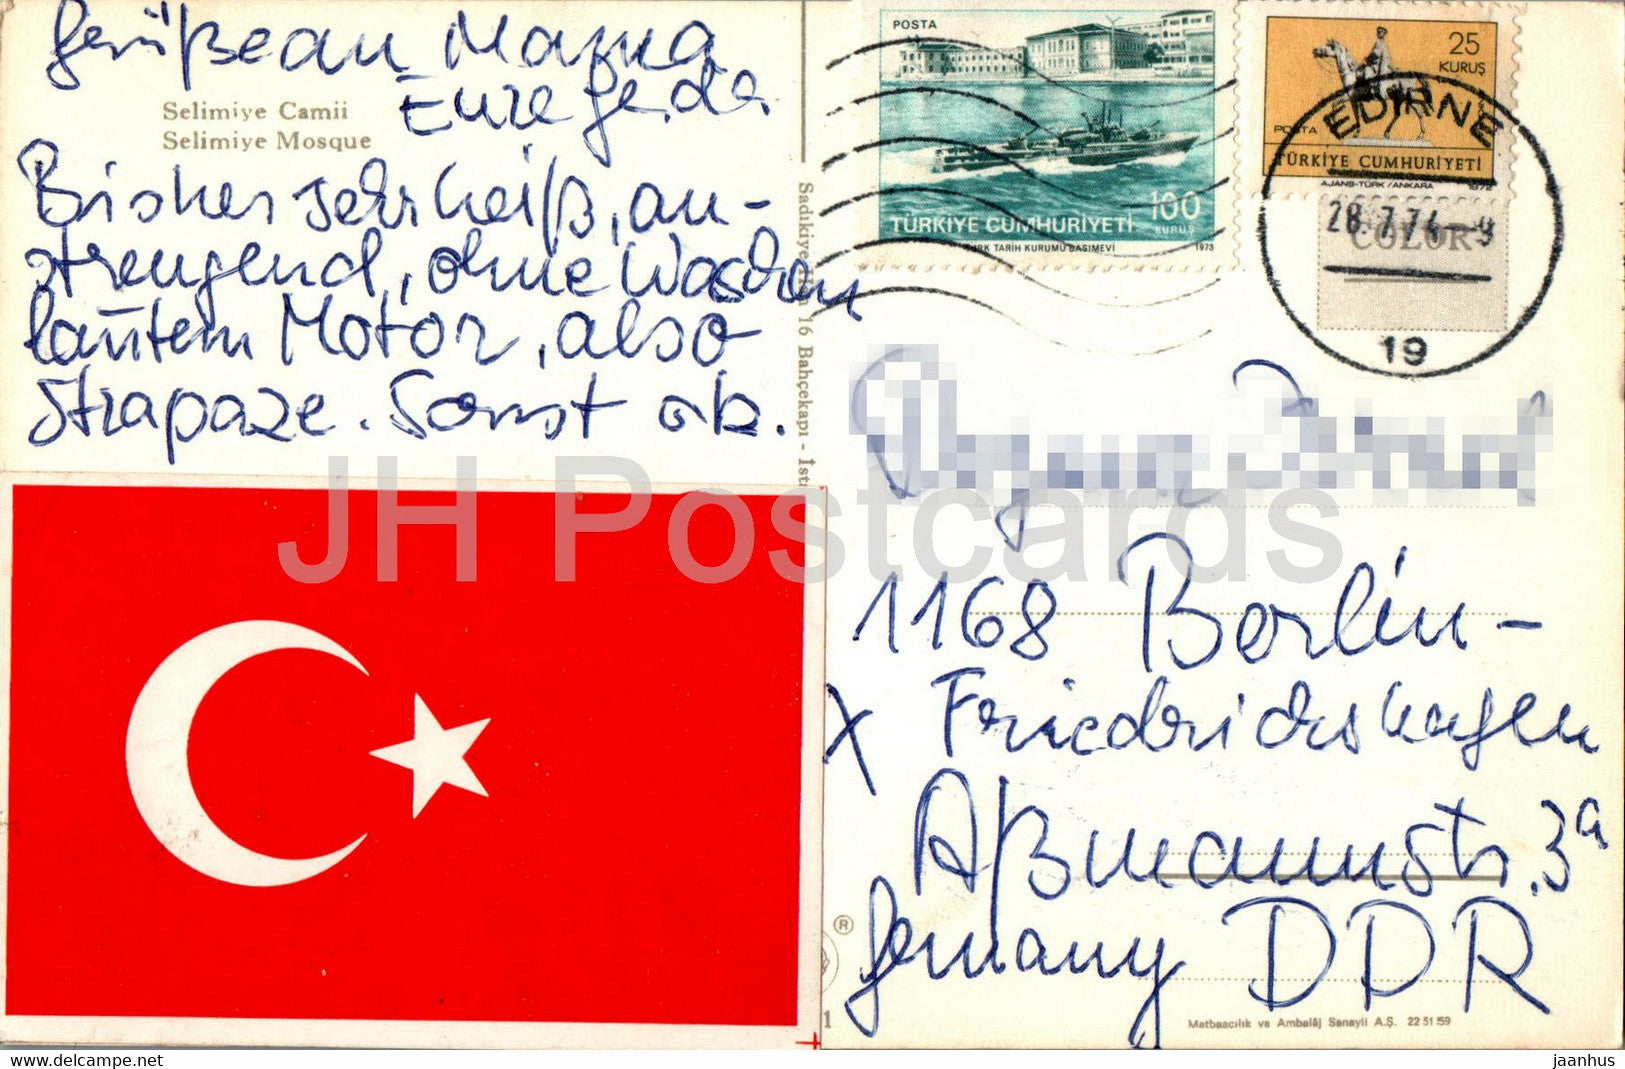 Grüße an Mama
Eure Gerda
Selimiye Camii
Selimiye Mosque
Bisher sehr heiß, an-
strengend, ohne Waschen
lautem Motor, also
Strapaze. Sonst ok.
Sadıkiye Han 16 Bahçekapı - İsta
POSTA
100
KURUŞ
TÜRKİYE CUMHURİYETİ
TÜRK TARİH KURUMU BASIMEVİ 1973
25
KURUŞ
POSTA
TÜRKİYE CUMHURİYETİ
AJANS-TÜRK/ANKARA
EDİRNE
28.7.74-9
COLOR
19
1168 Berlin-
X Friedrichshagen
Aßmannstr. 3a
Germany DDR
®
1
Matbaacılık ve Ambalâj Sanayii A.Ş. 22 51 59
JH Postcards
delcampe.net
jaanhus